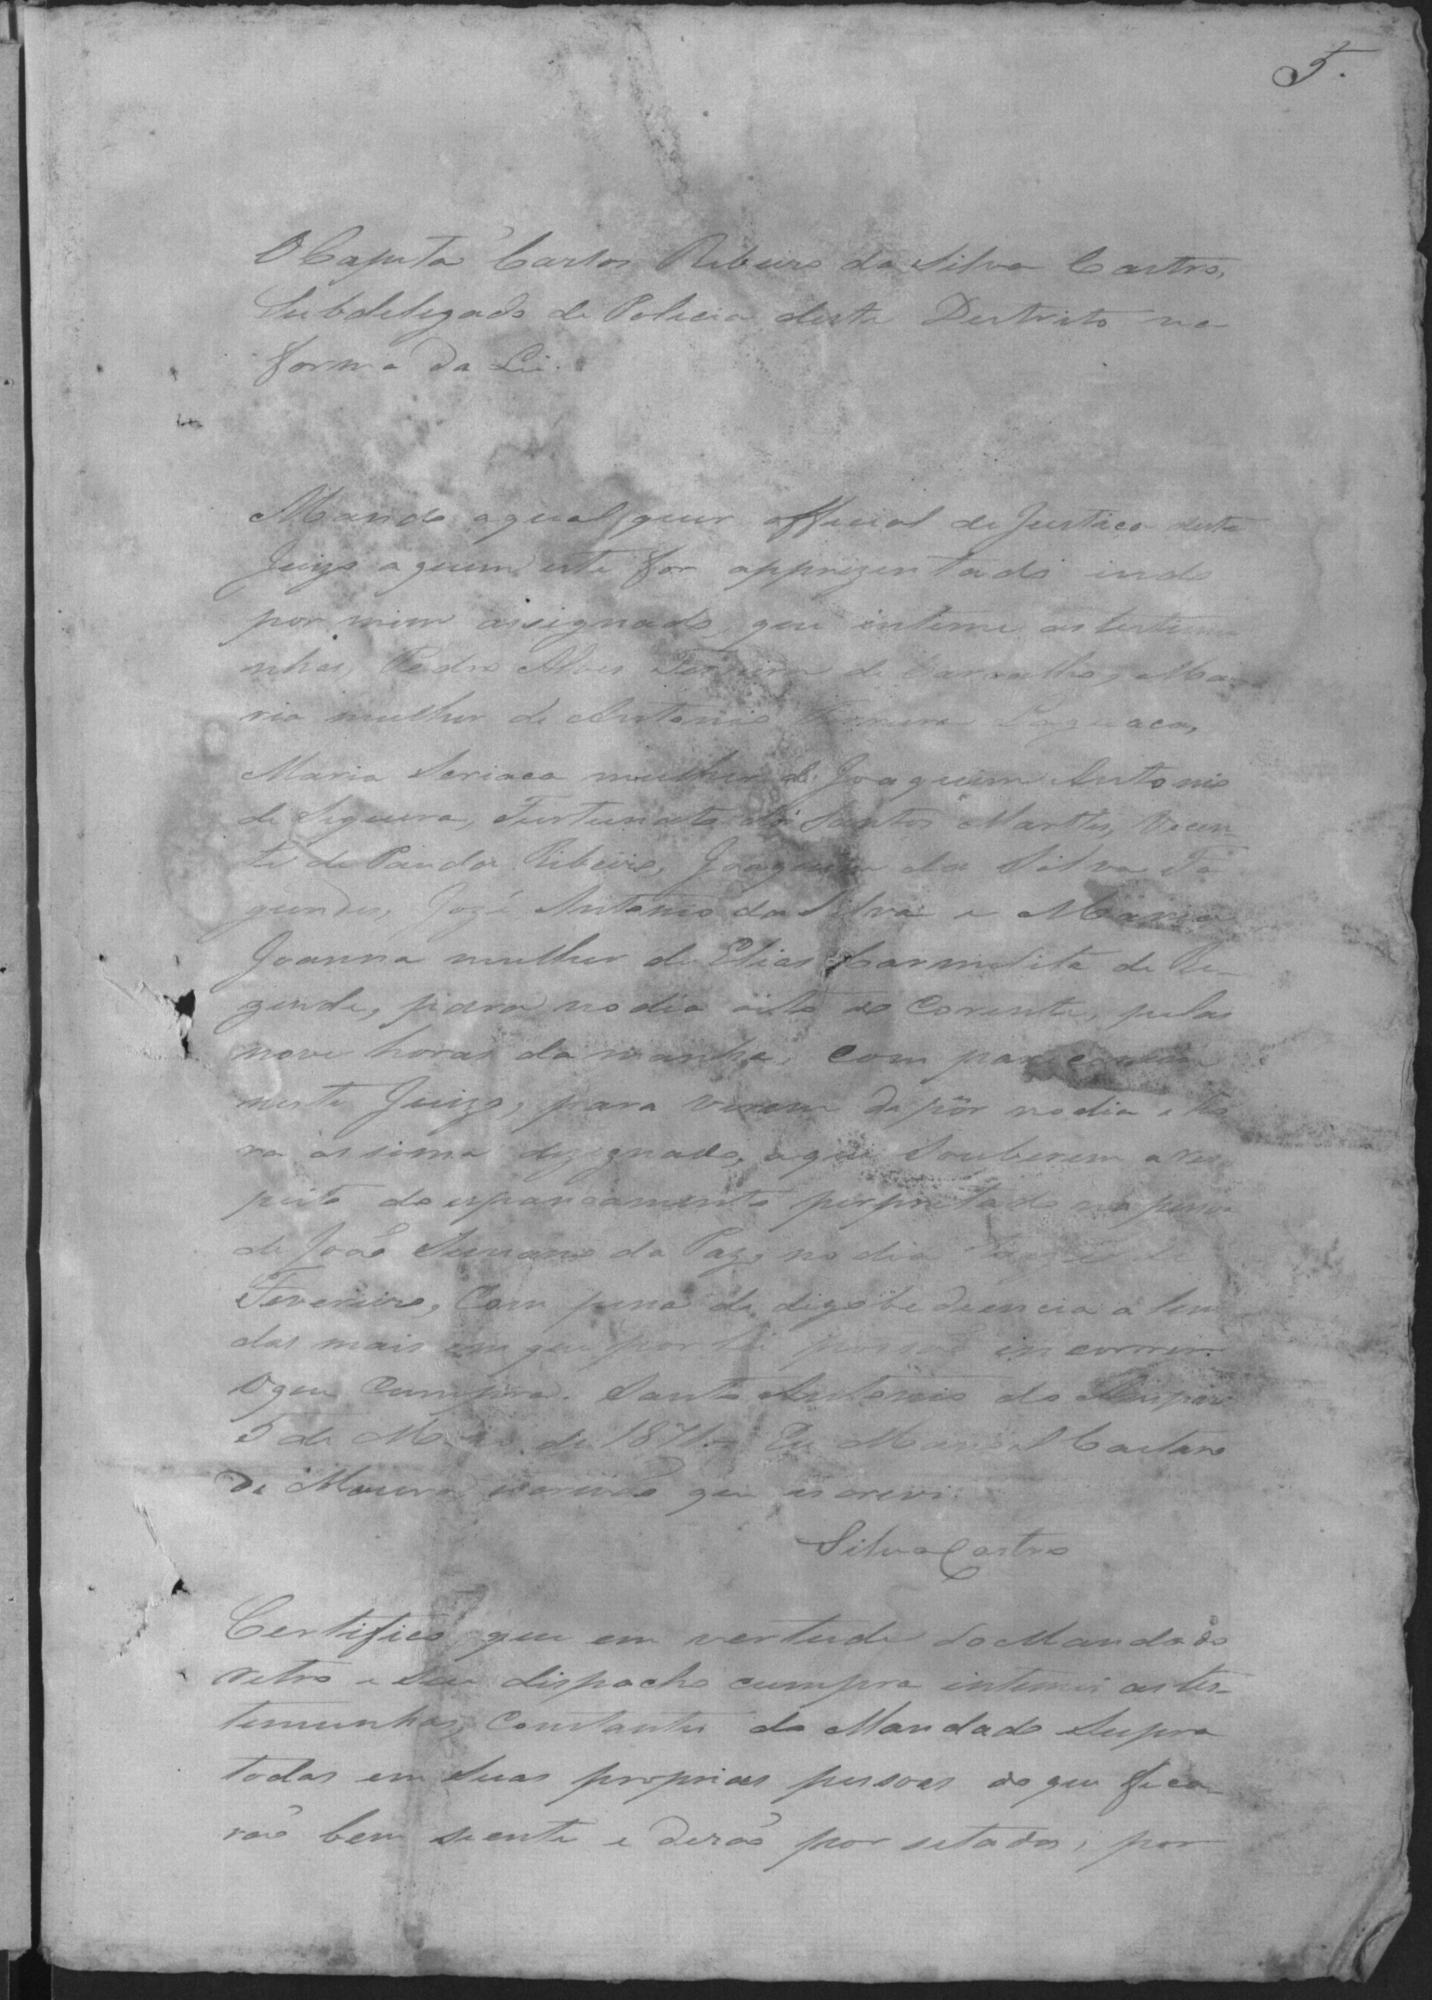 5.
O Capitaõ Carlos Ribeiro da Silva Castro,
Subdelegado de Policia deste Destrito na
forma da Lei.
Mando aqual quer official de Justica deste
Juizo aquem este for apprezentado indo
por mim assignado, que inteme as testimu
nhas, Pedro Alves Ferreira de Carvalho, Ma
ria mulher de Antonio Ferreira
Maria Seriaca mulher de Joaquim Antonio
de Siqueira, Fortunato dos Santos Martis, Vicen
te de Ribeiro, Joaquim da Silva Fa
gundes, Jozé Antonio da Silva e Maria
Joanna mulher de Elias Carmelita de Re
zende, para no dia oito do Corente, pelas
nove horas da manha, com pareceram
neste Juizo, para virem depôr no dia e ho
ra assima dezignado, oque Souberem a res
peito do espancamento perpretado na pessoa
de Joaõ da Paz, no dia de
Fevereiro, Com pena de dezobediencia alem
das mais em que por Lei possaõ incorrer.
Oque Cumpra. Santo Antonio do Amparo
5 de de 187 Eu Manoel Caetano
de Moura escrivaõ que escrevi.
Silva Castro
Certifico que em vertude do Mandado
retro e Seu dispacho cumpra intimei as tes-
temunhas, Constantes do Mandado Supra
todas em Suas proprias pessoas do que fica
raõ bem siente e deraõ por setados, por